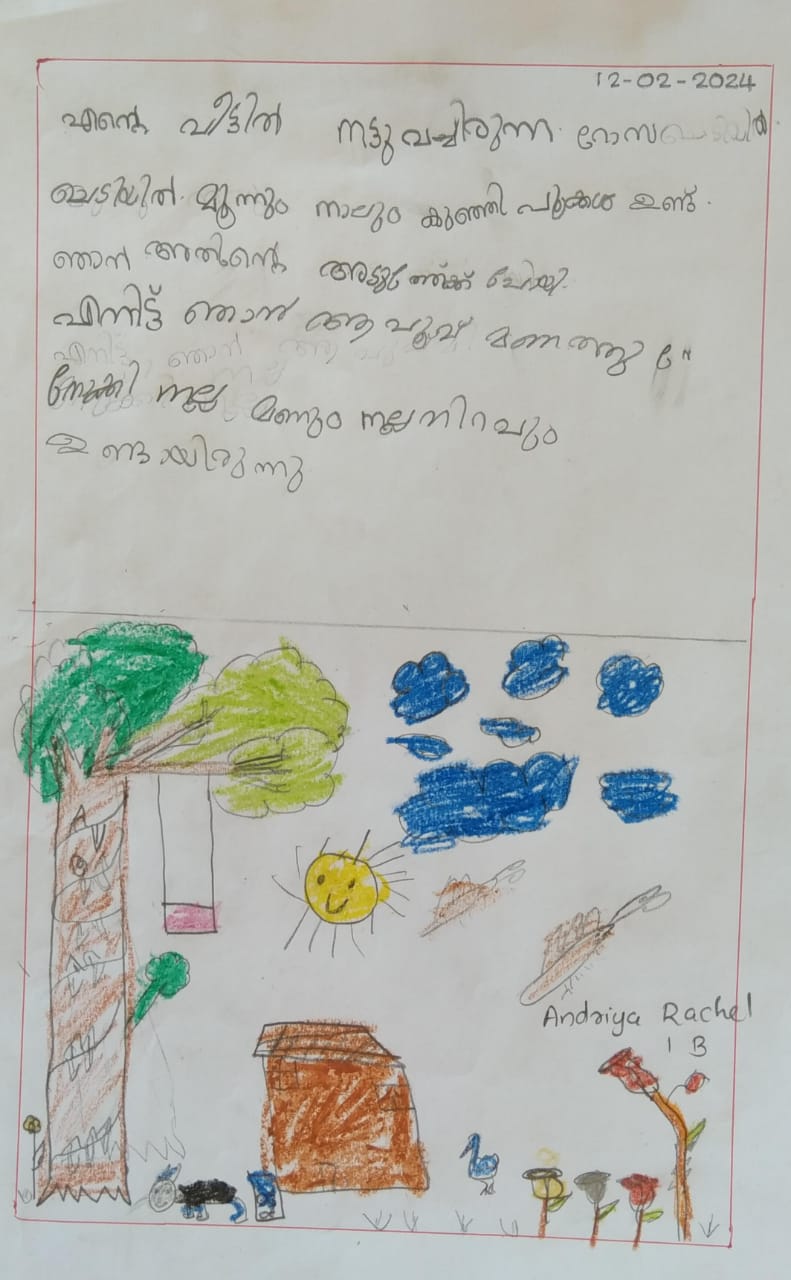 12-02-2024
എന്റെ വീട്ടിൽ നട്ടുവച്ചിരുന്ന റോസ
ചെടിയിൽ മൂന്നും നാലും കുഞ്ഞി പൂക്കൾ ഉണ്ട്.
ഞാൻ അതിന്റെ അടുത്തേക്ക് പോയി.
എന്നിട്ട് ഞാൻ ആ പൂവ് മണത്തു
നോക്കി നല്ല മണവും നല്ല നിറവും
ഉണ്ടായിരുന്നു
Andriya Rachel
1 B